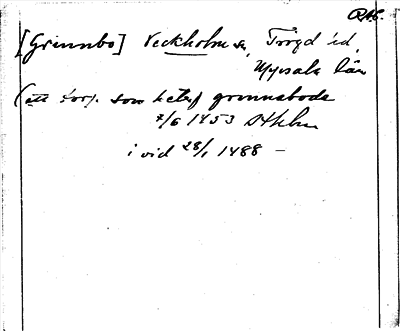 RAP.
[Grinnbo] Veckholm sn, Trögd hd,
Uppsala län
(ett torp. som heter grinnabode
7/6 1453 Sthlm
i vid 28/1 1488 –